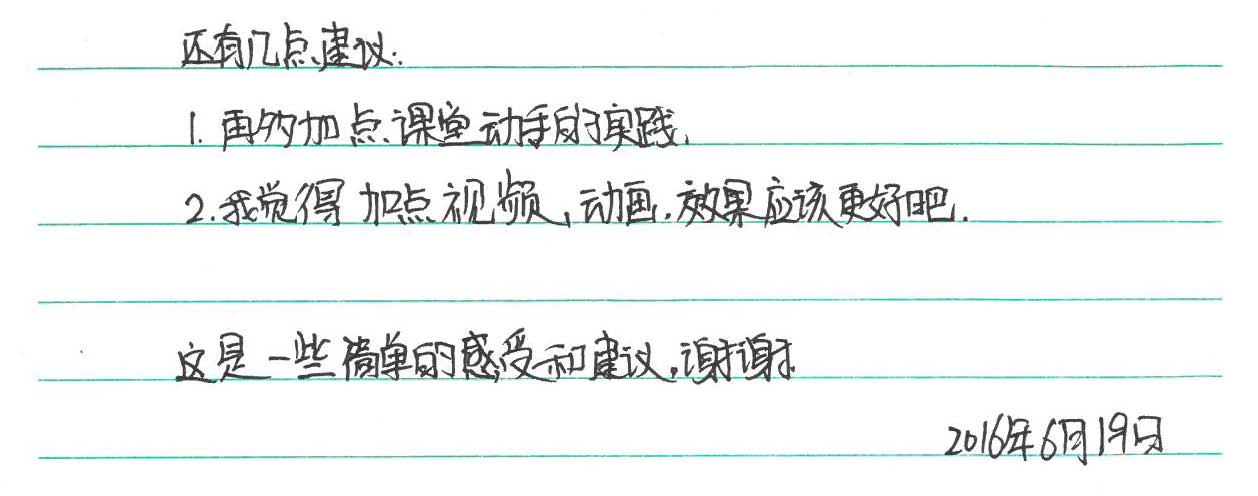 还有几点建议:
1. 再多加点课堂动手的实践.
2.我觉得加点视频,动画.效果应该更好吧.
这是一些简单的感受和建议,谢谢
2016年6月19日